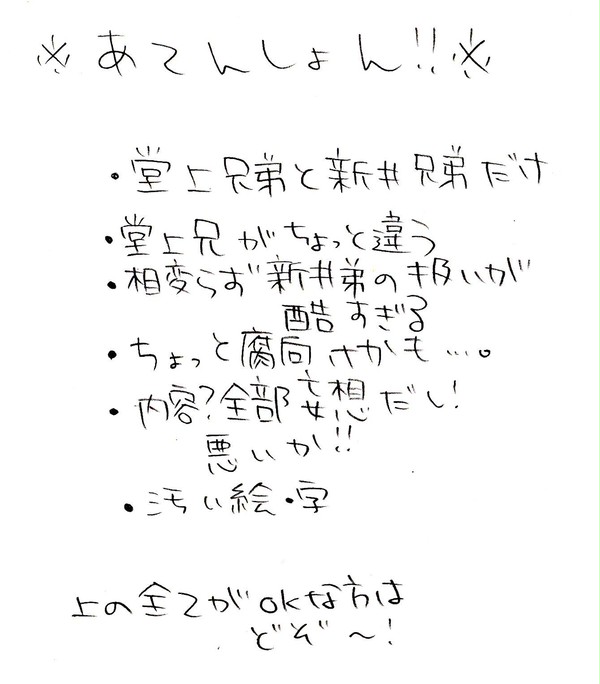 ※あてんしょん!!※
・堂上兄弟と新井兄弟だけ
・堂上兄がちょっと違う
・相変らず新井弟の扱いが
酷すぎる
・ちょっと腐向けかも…。
・内容?全部妄想だし!
悪いか!!
・汚い絵・字
上の全てがokな方は
どぞ~!